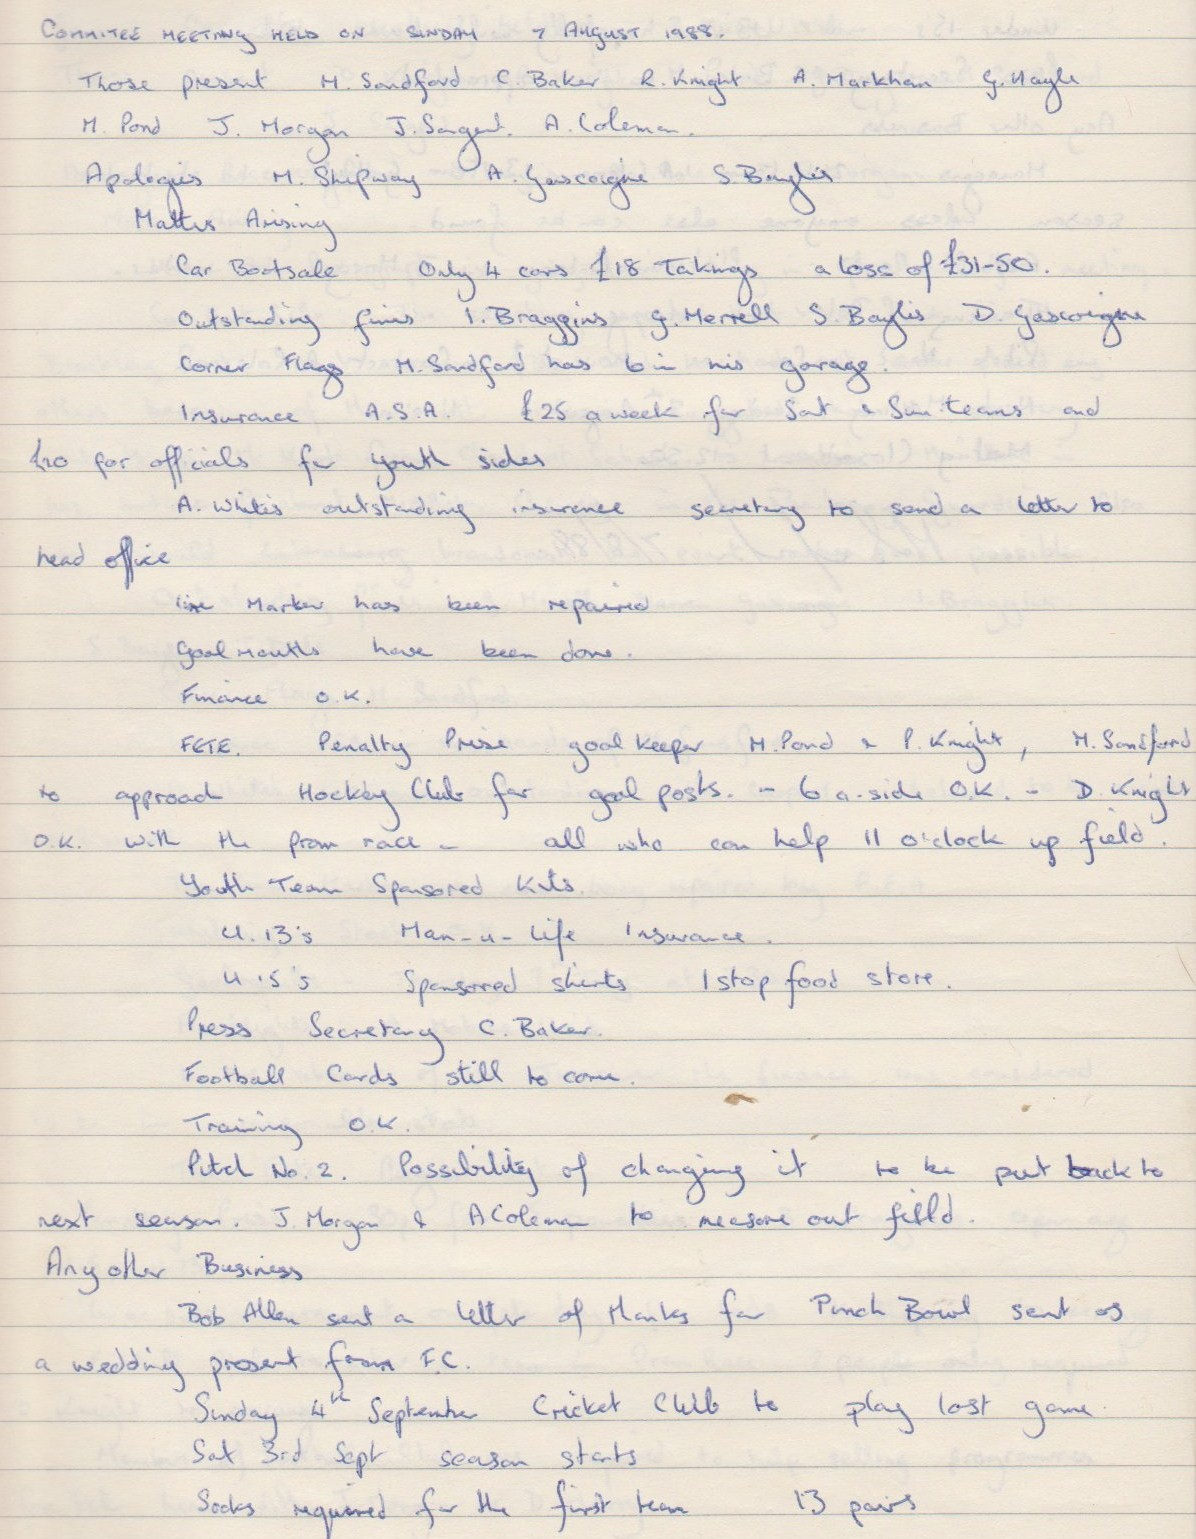 COMMITEE MEETING HELD ON SUNDAY 7 AUGUST 1988.
Those present M. Sandford C. Baker R. Knight A. Markham G. Nayle
M. Pond J. Morgan J. Sargent. A. Coleman.
Apologies M. Shipway A. Gascoigne S. Baylis
Matters Arising
Car Bootsale Only 4 cars £18 Takings a loss of £31-50.
Outstanding fines I. Braggins G. Merrell S. Baylis D. Gascoigne
Corner Flags M. Sandford has 6 in his garage.
Insurance A.S.A. £25 a week for Sat & Sun teams and
£20 for officials for youth sides
A. White's outstanding insurance secretary to send a letter to
head office
line Marker has been repaired
Goal mouths have been done.
Finance O.K.
FETE. Penalty Prize goal keeper M. Pond & P. Knight, M. Sandford
to approach Hockey Club for goal posts. - 6 a-side O.K. - D. Knight
O.K. with the pram race - all who can help 11 o'clock up field.
Youth Team Sponsored Kits.
U.13's Man-u-Life Insurance.
U.15's Sponsorred shirts 1 stop food store.
Press Secretary C. Baker.
Football Cards still to come.
Training O.K.
Pitch No. 2. Possibility of changing it to be put back to
next season. J. Morgan & A Coleman to measure out field.
Any other Business
Bob Allen sent a letter of thanks for Punch Bowl sent as
a wedding present from F.C.
Sunday 4th September Cricket Club to play last game.
Sat 3rd Sept season starts
Socks required for the first team 13 pairs